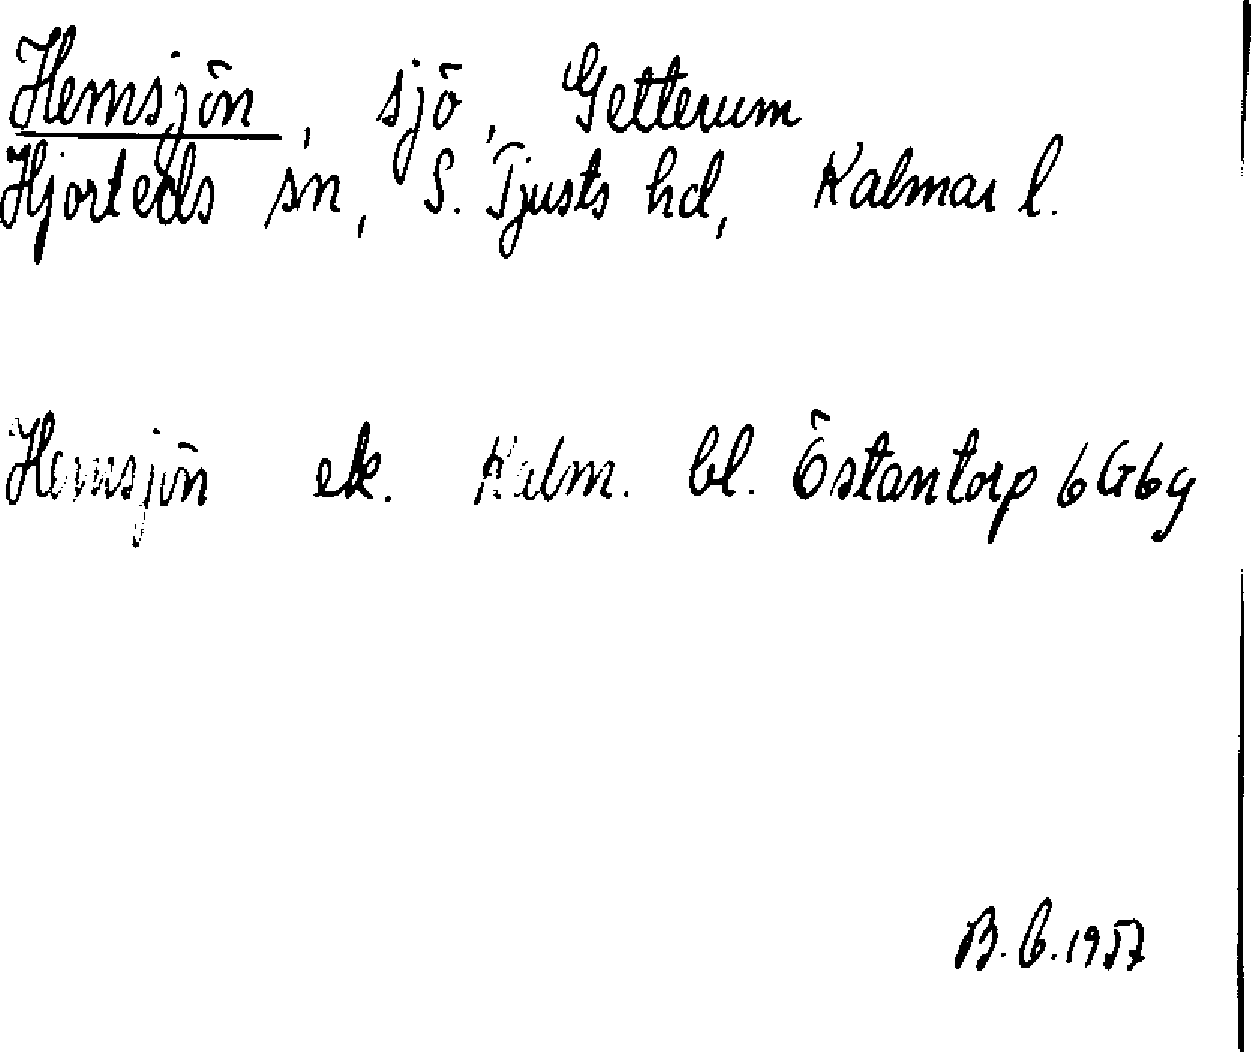 Hemsjön, sjö, Getterum
Hjorteds sn, S. Tjusts hd, Kalmar l.
Hemsjön ek. Kalm. bl. Östantorp 6G6g
B.G.1957